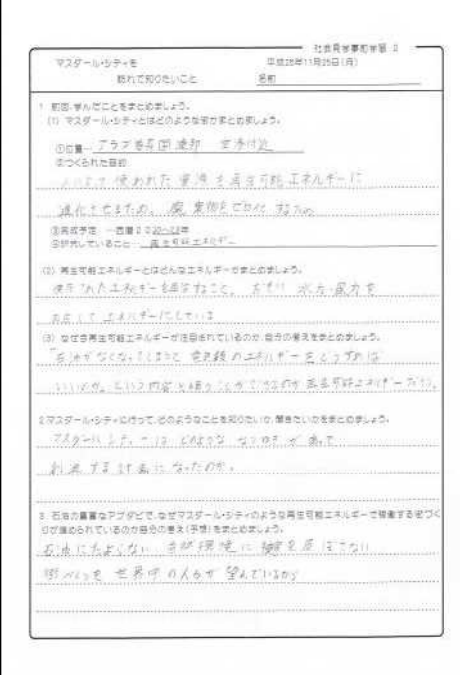 社会見学事前学習 2
マスダール・シティを
訪れて知りたいこと
平成25年11月25日(月)
名前
1 前回、学んだことをまとめましょう。
(1) マスダール・シティとはどのような街かまとめましょう。
①位置… アラブ首長国連邦 空港付近
②つくられた目的
使われた 資源を再生可能エネルギーに
進化させるため。廃棄物をゼロに するため
③完成予定 …西暦2020~
④研究していること… 再生可能エネルギー
(2) 再生可能エネルギーとはどんなエネルギーかまとめましょう。
使用 されたエネルギーを すること。 水力・風力を
して エネルギーにしている
(3) なぜ再生可能エネルギーが注目されているのか、自分の考えをまとめましょう。
石油がなくなってしまうと のエネルギーをどうすれば
いいのか。という内容 再生可能エネルギーだから。
2 マスダール・シティに行って、どのようなことを知りたいか、聞きたいかをまとめましょう。
マスダール シティー は どのような が あって
する計画に なったのか。
3 石油の豊富なアブダビで、なぜマスダール・シティのような再生可能エネルギーで稼働する街づく
りが進められているのか自分の考え(予想)をまとめましょう。
石油にたよらない 自然環境に 害を及ぼさない
街づくりを 世界中の人々が 望んでいるから